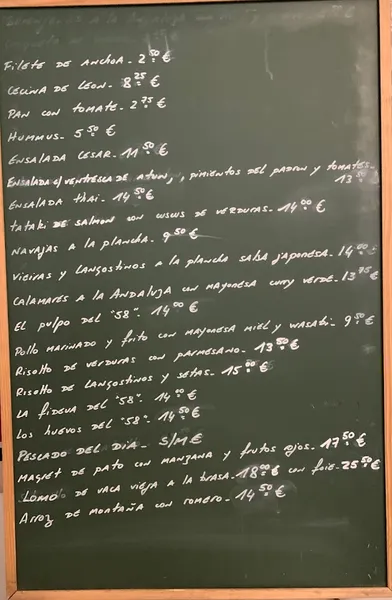 Filete de anchoa - 2'50 €
Cecina de León - 8'25 €
Pan con tomate - 2'75 €
Hummus - 5'50 €
Ensalada cesar - 11'50 €
Ensalada c/ ventresca de atún, pimientos del padrón y tomates - 13'50
Ensalada thai - 14'50 €
Tataki de salmon con cuscus de verduras - 14'00 €
Navajas a la plancha - 9'50 €
Vieiras y langostinos a la plancha salsa japonesa - 14'00 €
Calamares a la andaluza con mayonesa curry verde - 13'75 €
El pulpo del "58" 14'00 €
Pollo marinado y frito con mayonesa miel y wasabi - 9'50 €
Risotto de verduras con parmesano - 13'50 €
Risotto de langostinos y setas - 15'00 €
La fideua del "58" 14'00 €
Los huevos del "58" 14'50 €
Pescado del día - S/M €
Magret de pato con manzana y frutos rojos - 17'50 €
Lomo de vaca vieja a la brasa - 18'00 € con foie - 25'50 €
Arroz de montaña con romero - 14'50 €